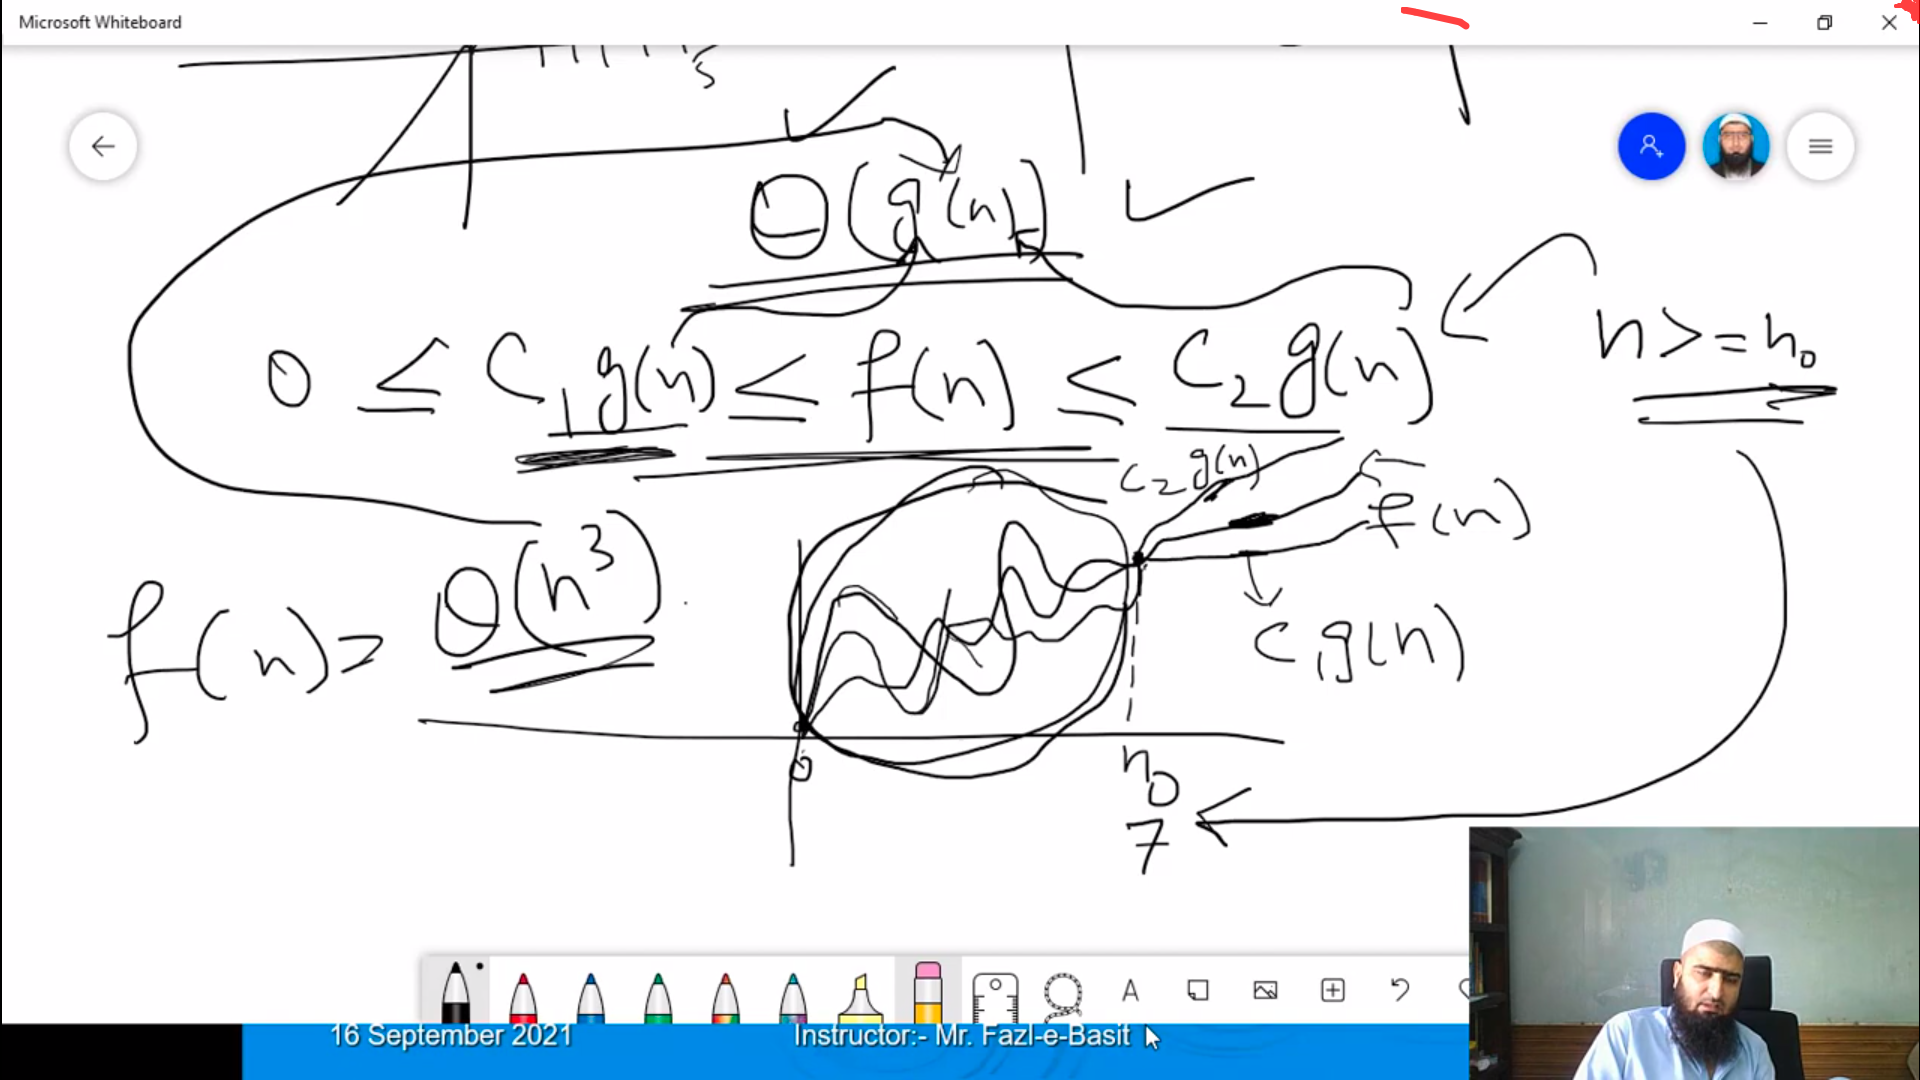 Microsoft Whiteboard
5
Θ(g(n))
0 ≤ C₁g(n) ≤ f(n) ≤ C₂g(n)
n >= n₀
C₂g(n)
f(n)
f(n) = Θ(n³)
C₁g(n)
0
n₀
7
A
16 September 2021
Instructor:- Mr. Fazl-e-Basit